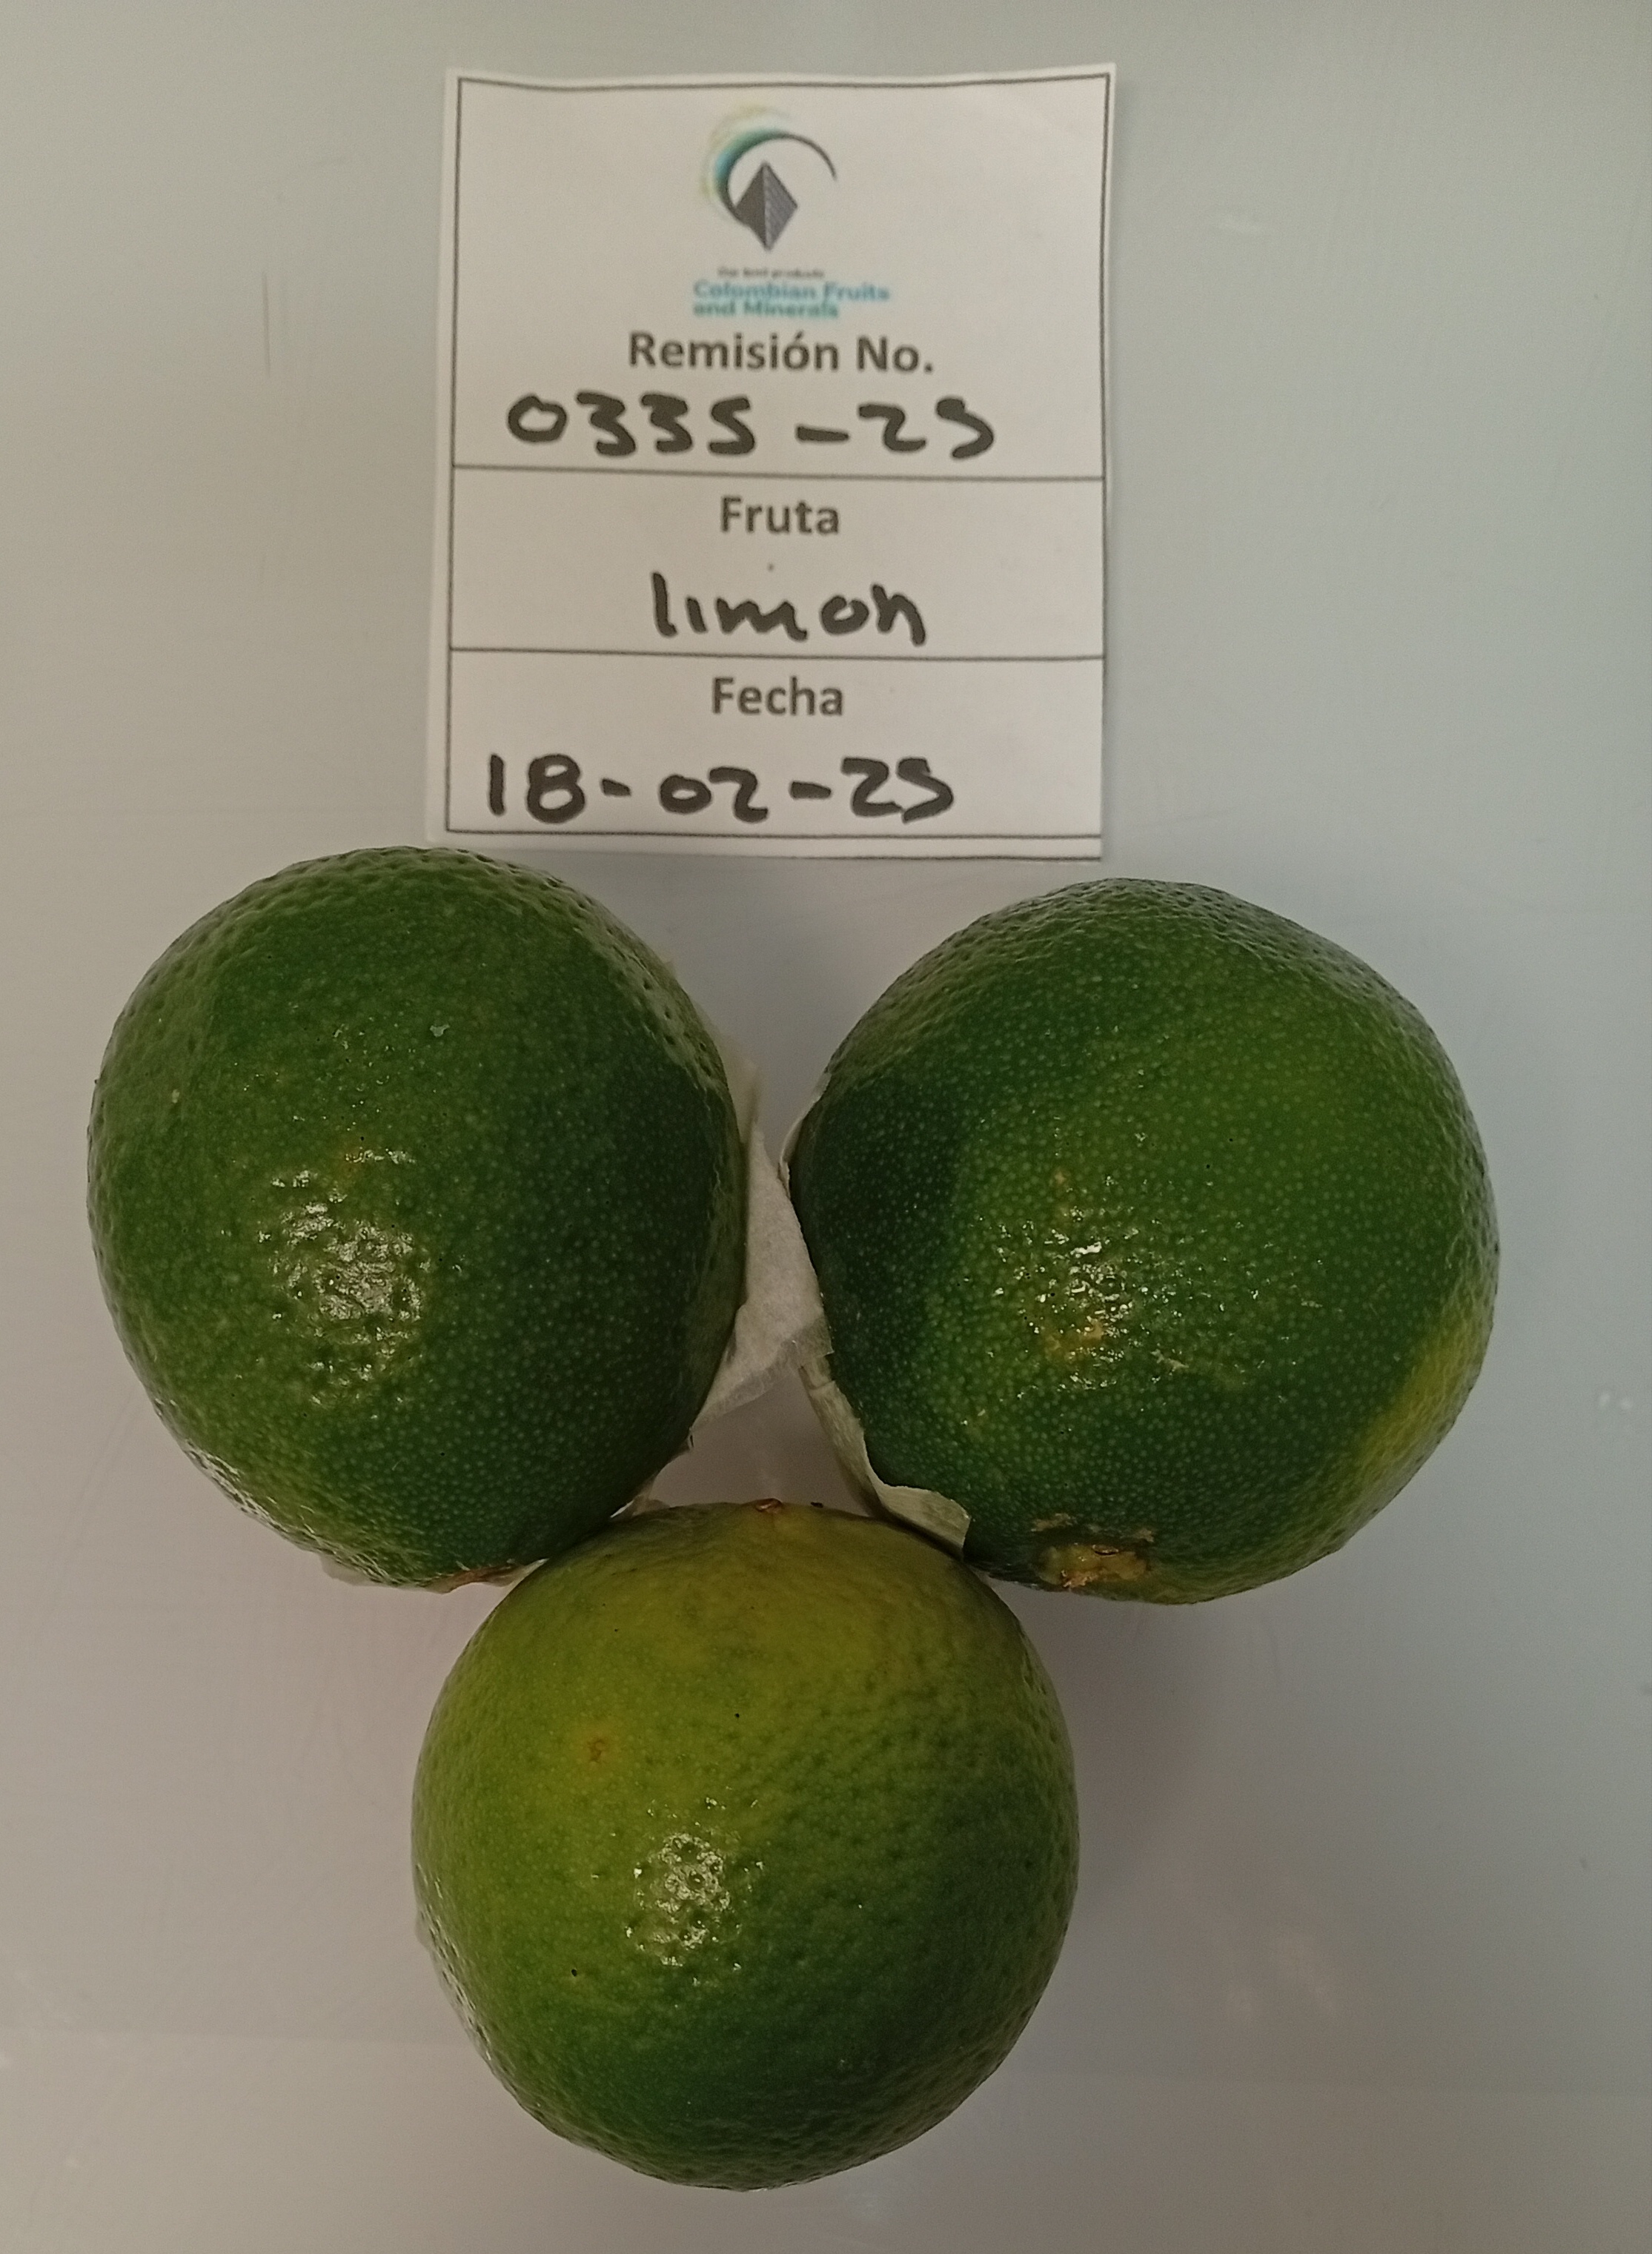 Our best products
Colombian Fruits
and Minerals
Remisión No.
0335-25
Fruta
limon
Fecha
18-02-25